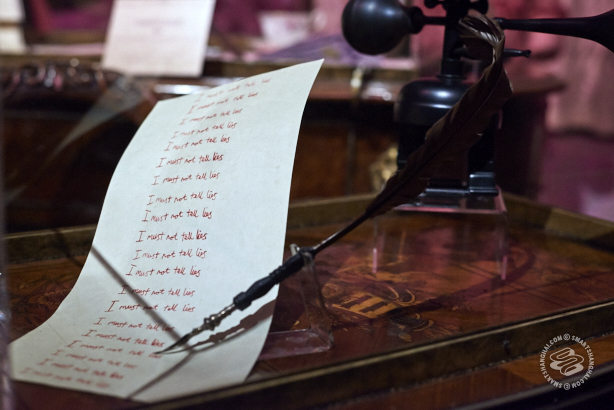 I must not tell lies
I must not tell lies
I must not tell lies
I must not tell lies
I must not tell lies
I must not tell lies
I must not tell lies
I must not tell lies
I must not tell lies
I must not tell lies
I must not tell lies
I must not tell lies
I must not tell lies
I must not tell lies
I must not tell lies
I must not tell lies
I must not tell lies
I must not tell lies
I must not tell lies
© SMARTSHANGHAI.COM © SMARTSHANGHAI.COM